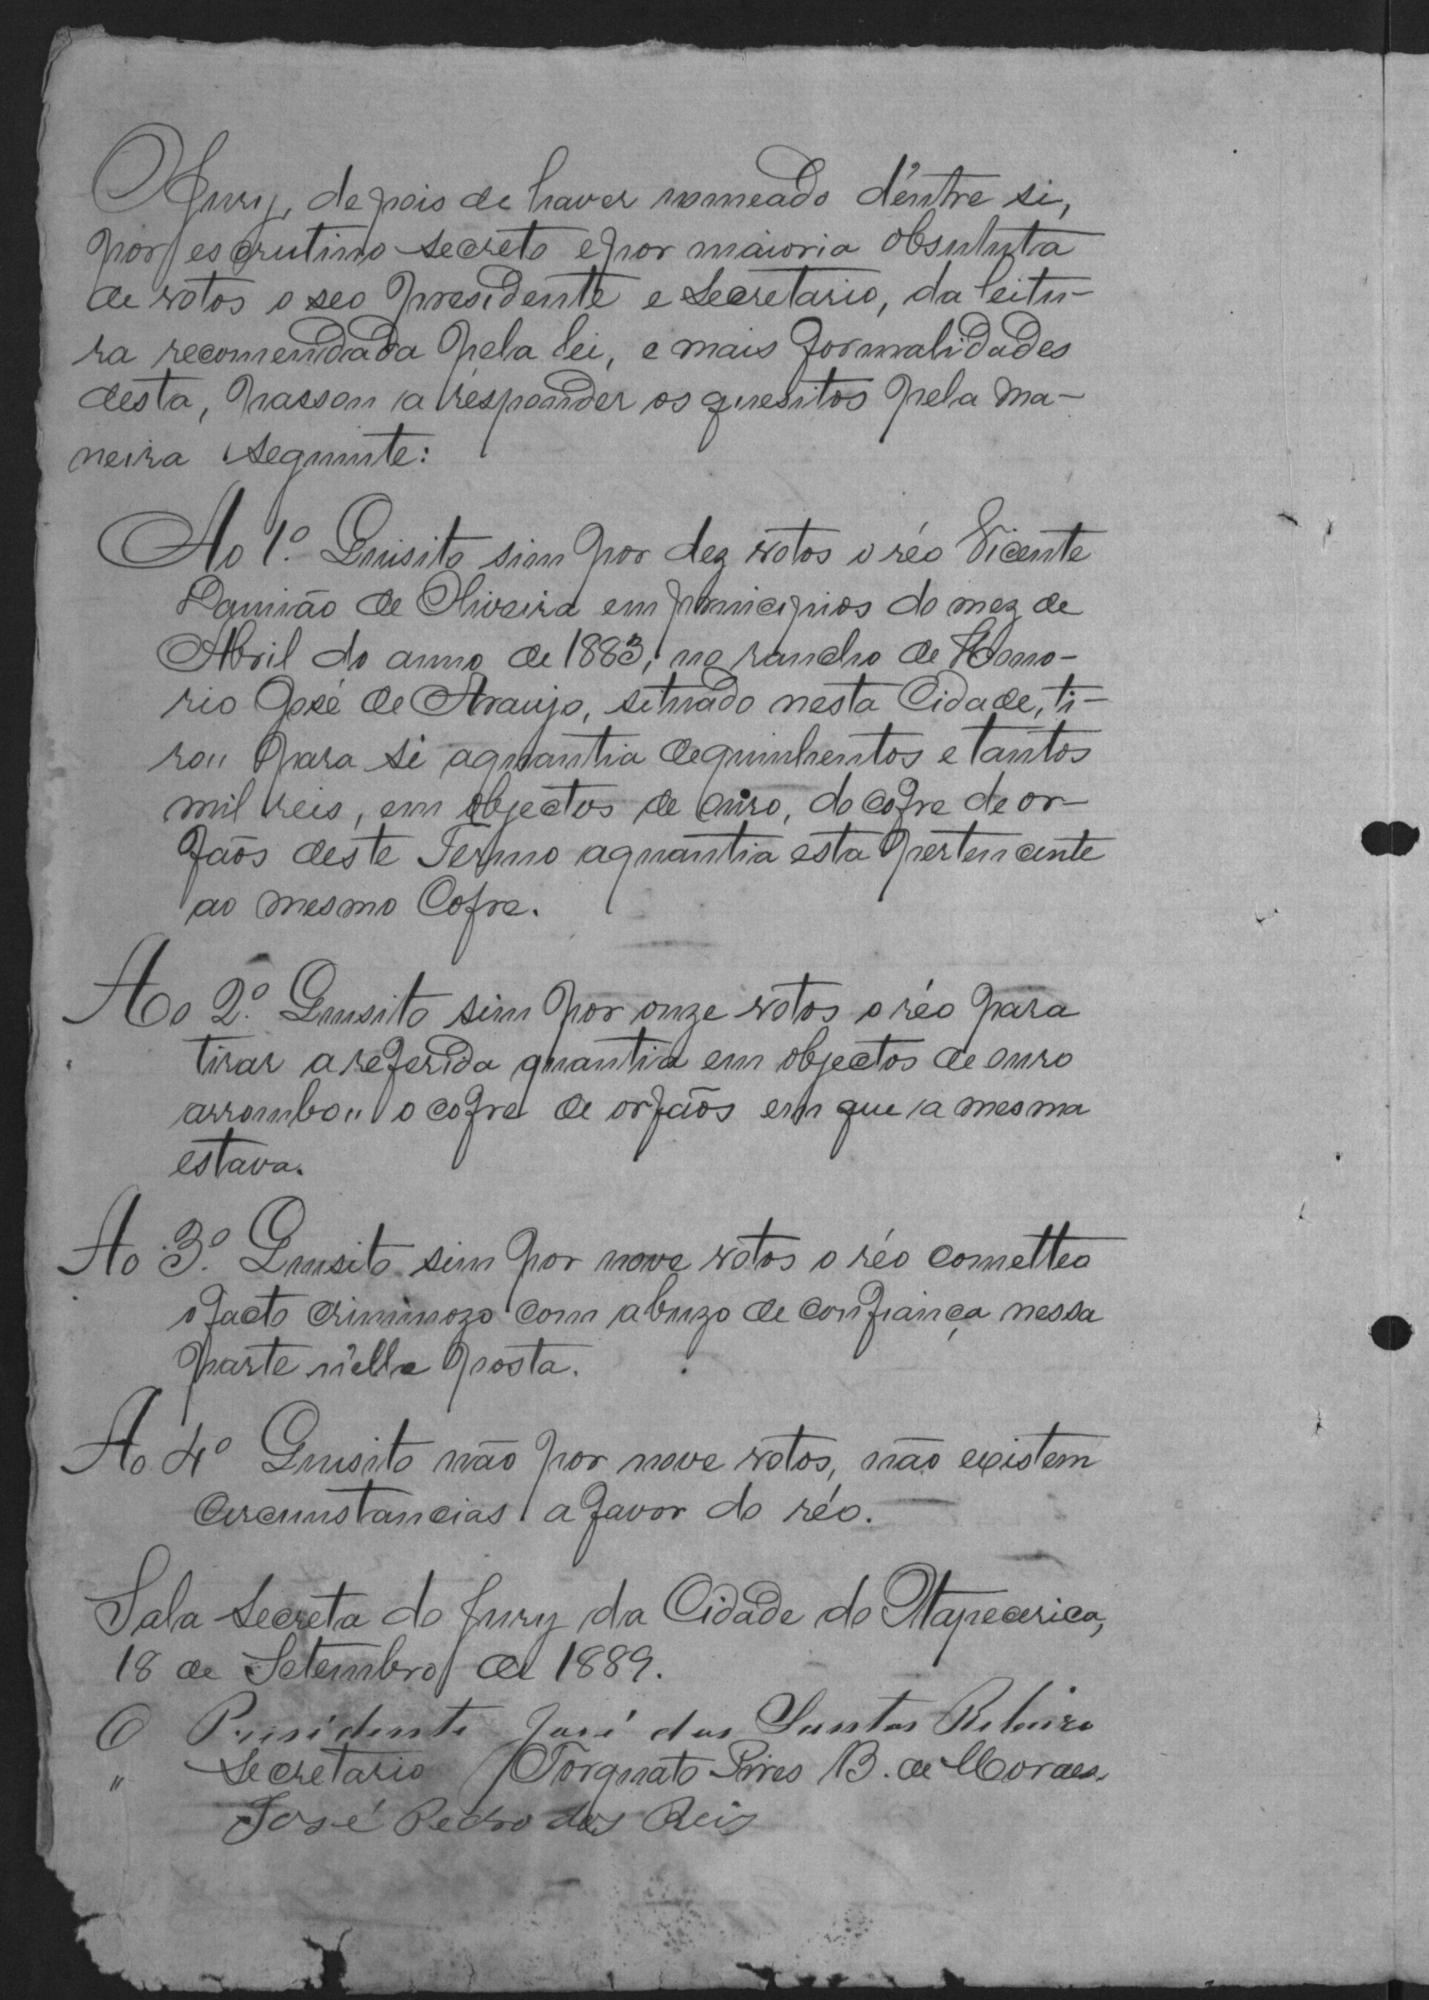 O Jury, depois de haver nomeado d'entre si,
por escrutinio secreto e por maioria absuluta
de votos o seo presidente e secretario, da leitu-
ra recomendada pela lei, e mais formalidades
desta, passou a responder os quesitos pela ma-
neira seguinte:
Ao 1º Quisito sim por dez votos o réo Vicente
Damião de Oliveira em principios do mez de
Abril do anno de 1883, no rancho de Hono-
rio José de Araujo, situado nesta Cidade, ti-
rou para si a quantia de quinhentos e tantos
mil reis, em objectos de ouro, do cofre de or-
fãos deste Termo a quantia esta pertencente
ao mesmo Cofre.
Ao 2º Quisito sim por onze votos o réo para
tirar a referida quantia em objectos de ouro
arrombou o cofre de orfãos em que a mesma
estava.
Ao 3º Quisito sim por nove votos o réo cometteo
o facto criminozo com abuzo de confiança nessa
parte n'elle posta.
Ao 4º Quisito não por nove votos, não existem
circunstancias a favor do réo.
Sala secreta do Jury da Cidade do Itapecerica,
18 de Setembro de 1889.
O Presidente José dos Santos Ribeiro
" Secretario Torquato Pires B. de Moraes.
José Pedro dos Reis